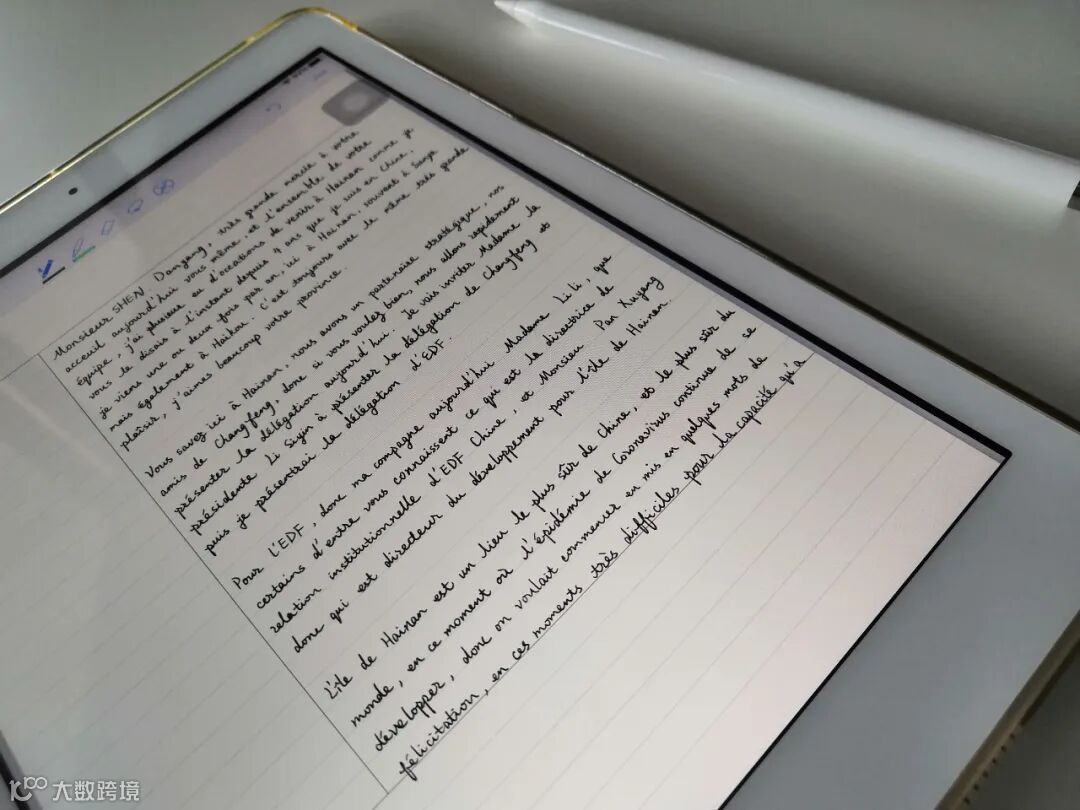 Monsieur SHEN Danyang, très grande mercie à votre
accueil aujourd'hui vous même, et l'ensemble de votre
équipe, j'ai plusieurs eu d'occations de venir à Hainan comme je
vous le disais à l'instant depuis 4 ans que je suis en Chine,
je viens une ou deux fois par an, ici à Hainan, souvent à Sanya
mais également à Haikou. C'est toujours avec le même très grande
plaisir, j'aimes beaucoup votre province.
Vous savez ici à Hainan, nous avons un partenaire stratégique, nos
amis de Changfeng, donc si vous voulez bien, nous allons rapidement
présenter la délégation aujourd'hui. Je vais inviter Madame la
présidente Li Siyin à présenter la délégation de Changfeng et
puis je présentrai la délégation d'EDF.
Pour l'EDF, donc ma compagne aujourd'hui Madame Li Li, que
certains d'entre vous connaissent ce qui est la directrice de
relation institutionnelle d'EDF Chine, et Monsieur Pan Xuyang
donc qui est directeur du développement pour l'île de Hainan.
L'île de Hainan est un lieu le plus sûr de Chine, et le plus sûr du
monde, en ce moment où l'épidémie de Coronavirus continue de se
développer, donc on voulait commencer en mis en quelques mots de
félicitation, en ces moments très difficiles pour la capacité qu'a
大数跨境